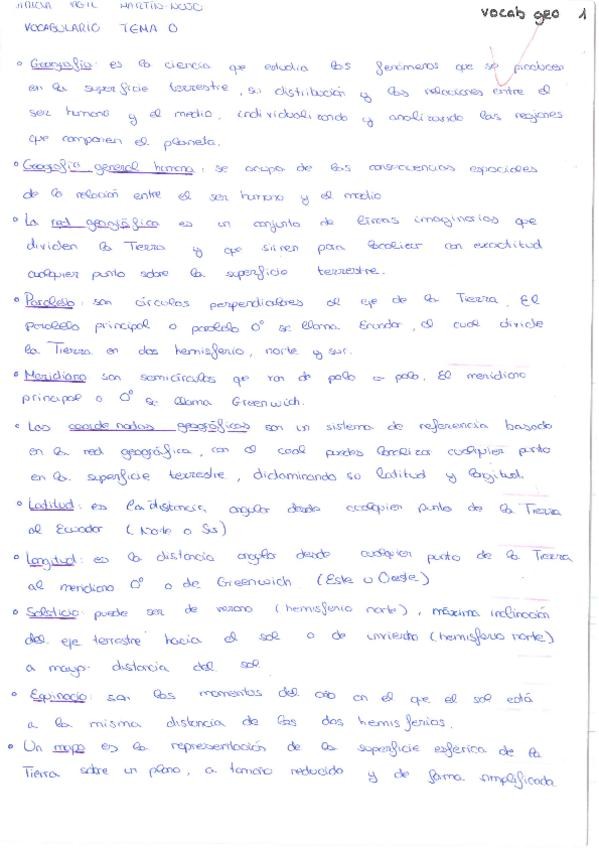 vocab geo 1
VOCABULARIO TEMA 0
• Geografía: es la ciencia que estudia los fenómenos que se producen
en la superficie terrestre, su distribución y las relaciones entre el
ser humano y el medio, individualizando y analizando las regiones
que componen el planeta.
• Geografía general humana: se ocupa de las consecuencias espaciales
de la relación entre el ser humano y el medio
• La red geográfica es un conjunto de líneas imaginarias que
dividen la Tierra y que sirven para localizar con exactitud
cualquier punto sobre la superficie terrestre.
• Paralelo: son círculos perpendiculares al eje de la Tierra. El
paralelo principal o paralelo 0° se llama Ecuador, el cual divide
la Tierra en dos hemisferio, norte y sur.
• Meridiano son semicírculos que van de polo a polo. El meridiano
principal o 0° se llama Greenwich.
• Las coordenadas geográficas son un sistema de referencia basado
en la red geográfica, con el cual puedes localizar cualquier punto
en la superficie terrestre, dictaminando su latitud y longitud.
• Latitud: es la distancia angular desde cualquier punto de la Tierra
al Ecuador (Norte o Sur)
• Longitud: es la distancia angular desde cualquier punto de la Tierra
al meridiano 0° o de Greenwich. (Este u Oeste)
• Solsticio: puede ser de verano (hemisferio norte), máxima inclinación
del eje terrestre hacia el sol o de invierno (hemisferio norte)
a mayor distancia del sol
• Equinocio: son los momentos del año en el que el sol está
a la misma distancia de los dos hemisferios.
• Un mapa es la representación de la superficie esférica de la
Tierra sobre un plano, a tamaño reducido y de forma simplificada